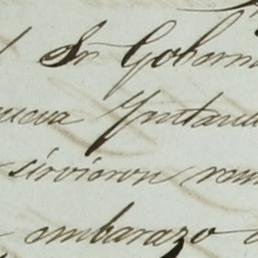 l Sr Gobern
nueva Yntend
sirvieron rem
embarazo